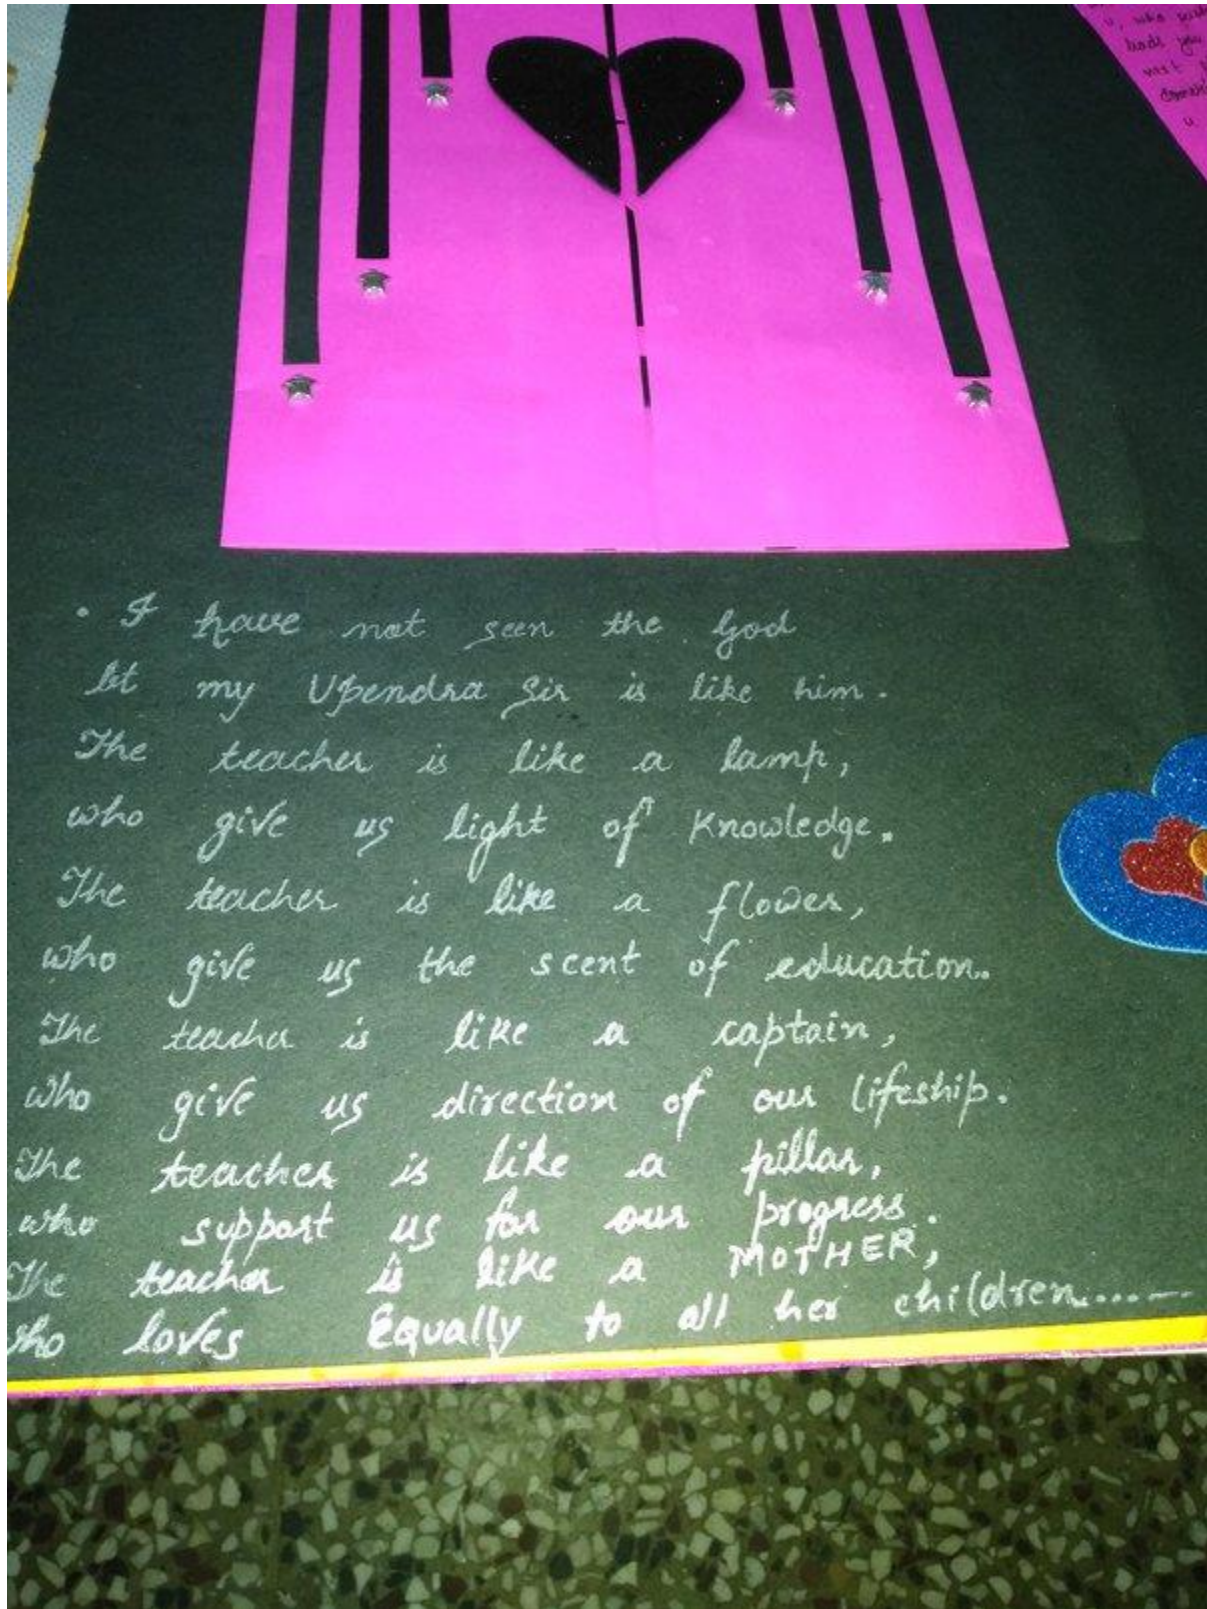 u, who
leads you
• I have not seen the God
let my Upendra Sir is like him.
The teacher is like a lamp,
who give us light of Knowledge.
The teacher is like a flower,
who give us the scent of education..
The teacher is like a captain,
who give us direction of our lifeship.
The teacher is like a pillar,
who support us for our progress.
The teacher is like a MOTHER,
who loves Equally to all her children......-